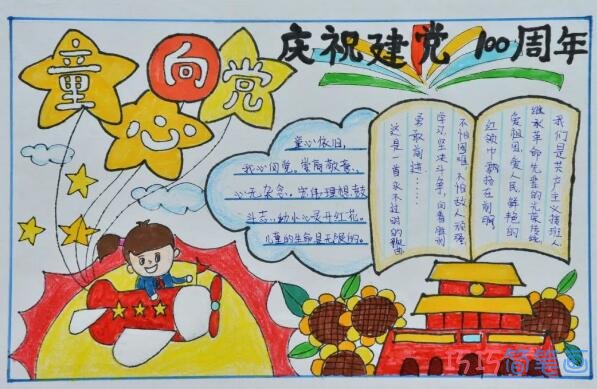 童心向党
庆祝建党 100周年
童心依旧,
我心向党,
心无杂念,宏伟理想鼓
斗志,幼小心灵开红花,
儿童的生命是无限的。
我们是共产主义接班人
继承革命先辈的光荣传统
爱祖国,爱人民,鲜艳的
红领巾飘扬在前胸
不怕困难,不怕敌人顽强
学习,坚决斗争,向着胜利
勇敢前进……
这是一首永不过时的歌曲
巧巧简笔画